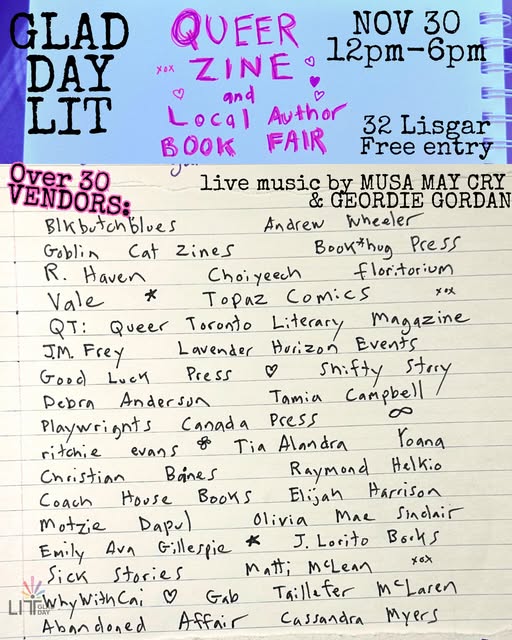 GLAD
DAY
LIT
QUEER
xox ZINE
and
Local Author
BOOK FAIR
NOV 30
12pm-6pm
32 Lisgar
Free entry
Over 30
VENDORS:
live music by MUSA MAY CRY
& GEORDIE GORDAN
Blkbutchblues Andrew Wheeler
Goblin Cat Zines Book*hug Press
R. Haven Choiyeech floritorium
Vale * Topaz Comics xox
QT: Queer Toronto Literary Magazine
J.M. Frey Lavender Horizon Events
Good Luck Press ♡ Shifty Story
Debra Anderson Tamia Campbell
Playwrights Canada Press ∞
ritchie evans Tia Alandra Yoana
Christian Baines Raymond Helkio
Coach House Books Elijah Harrison
Motzie Dapul Olivia Mae Sinclair
Emily Ava Gillespie * J. Lorito Books
Sick Stories Matti McLean xox
WhyWithCai ♡ Gab Taillefer McLaren
Abandoned Affair Cassandra Myers
LIT GLAD DAY